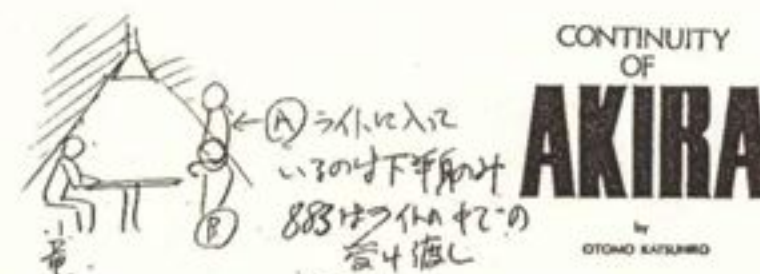 Ⓐ ライトに入って
いるのは下半身のみ
883はライトの中での
受け渡し
Ⓑ
CONTINUITY
OF
AKIRA
by
OTOMO KATSUHIRO